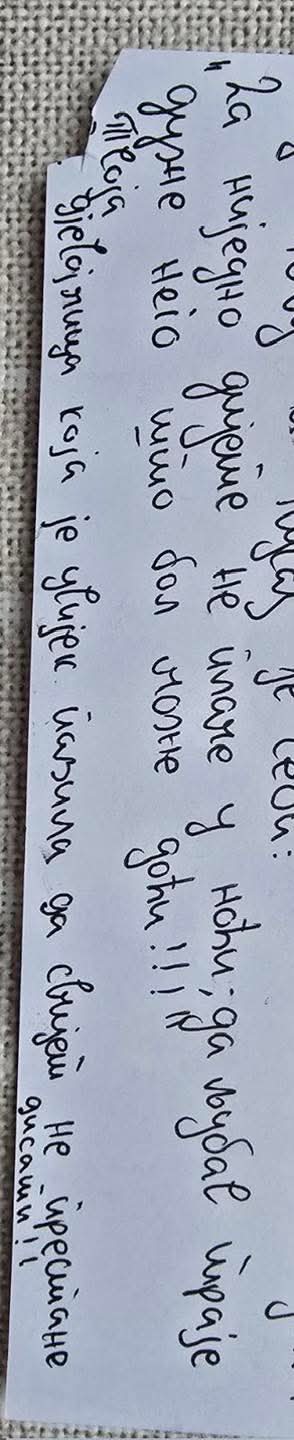 је себи:
„Да ниједно дијете не плаче у ноћи; да љубав траје
дуже него што бол може доћи!!!“
Твоја
дјевојчица која је увијек пазила да свијет не престане
дисати!!